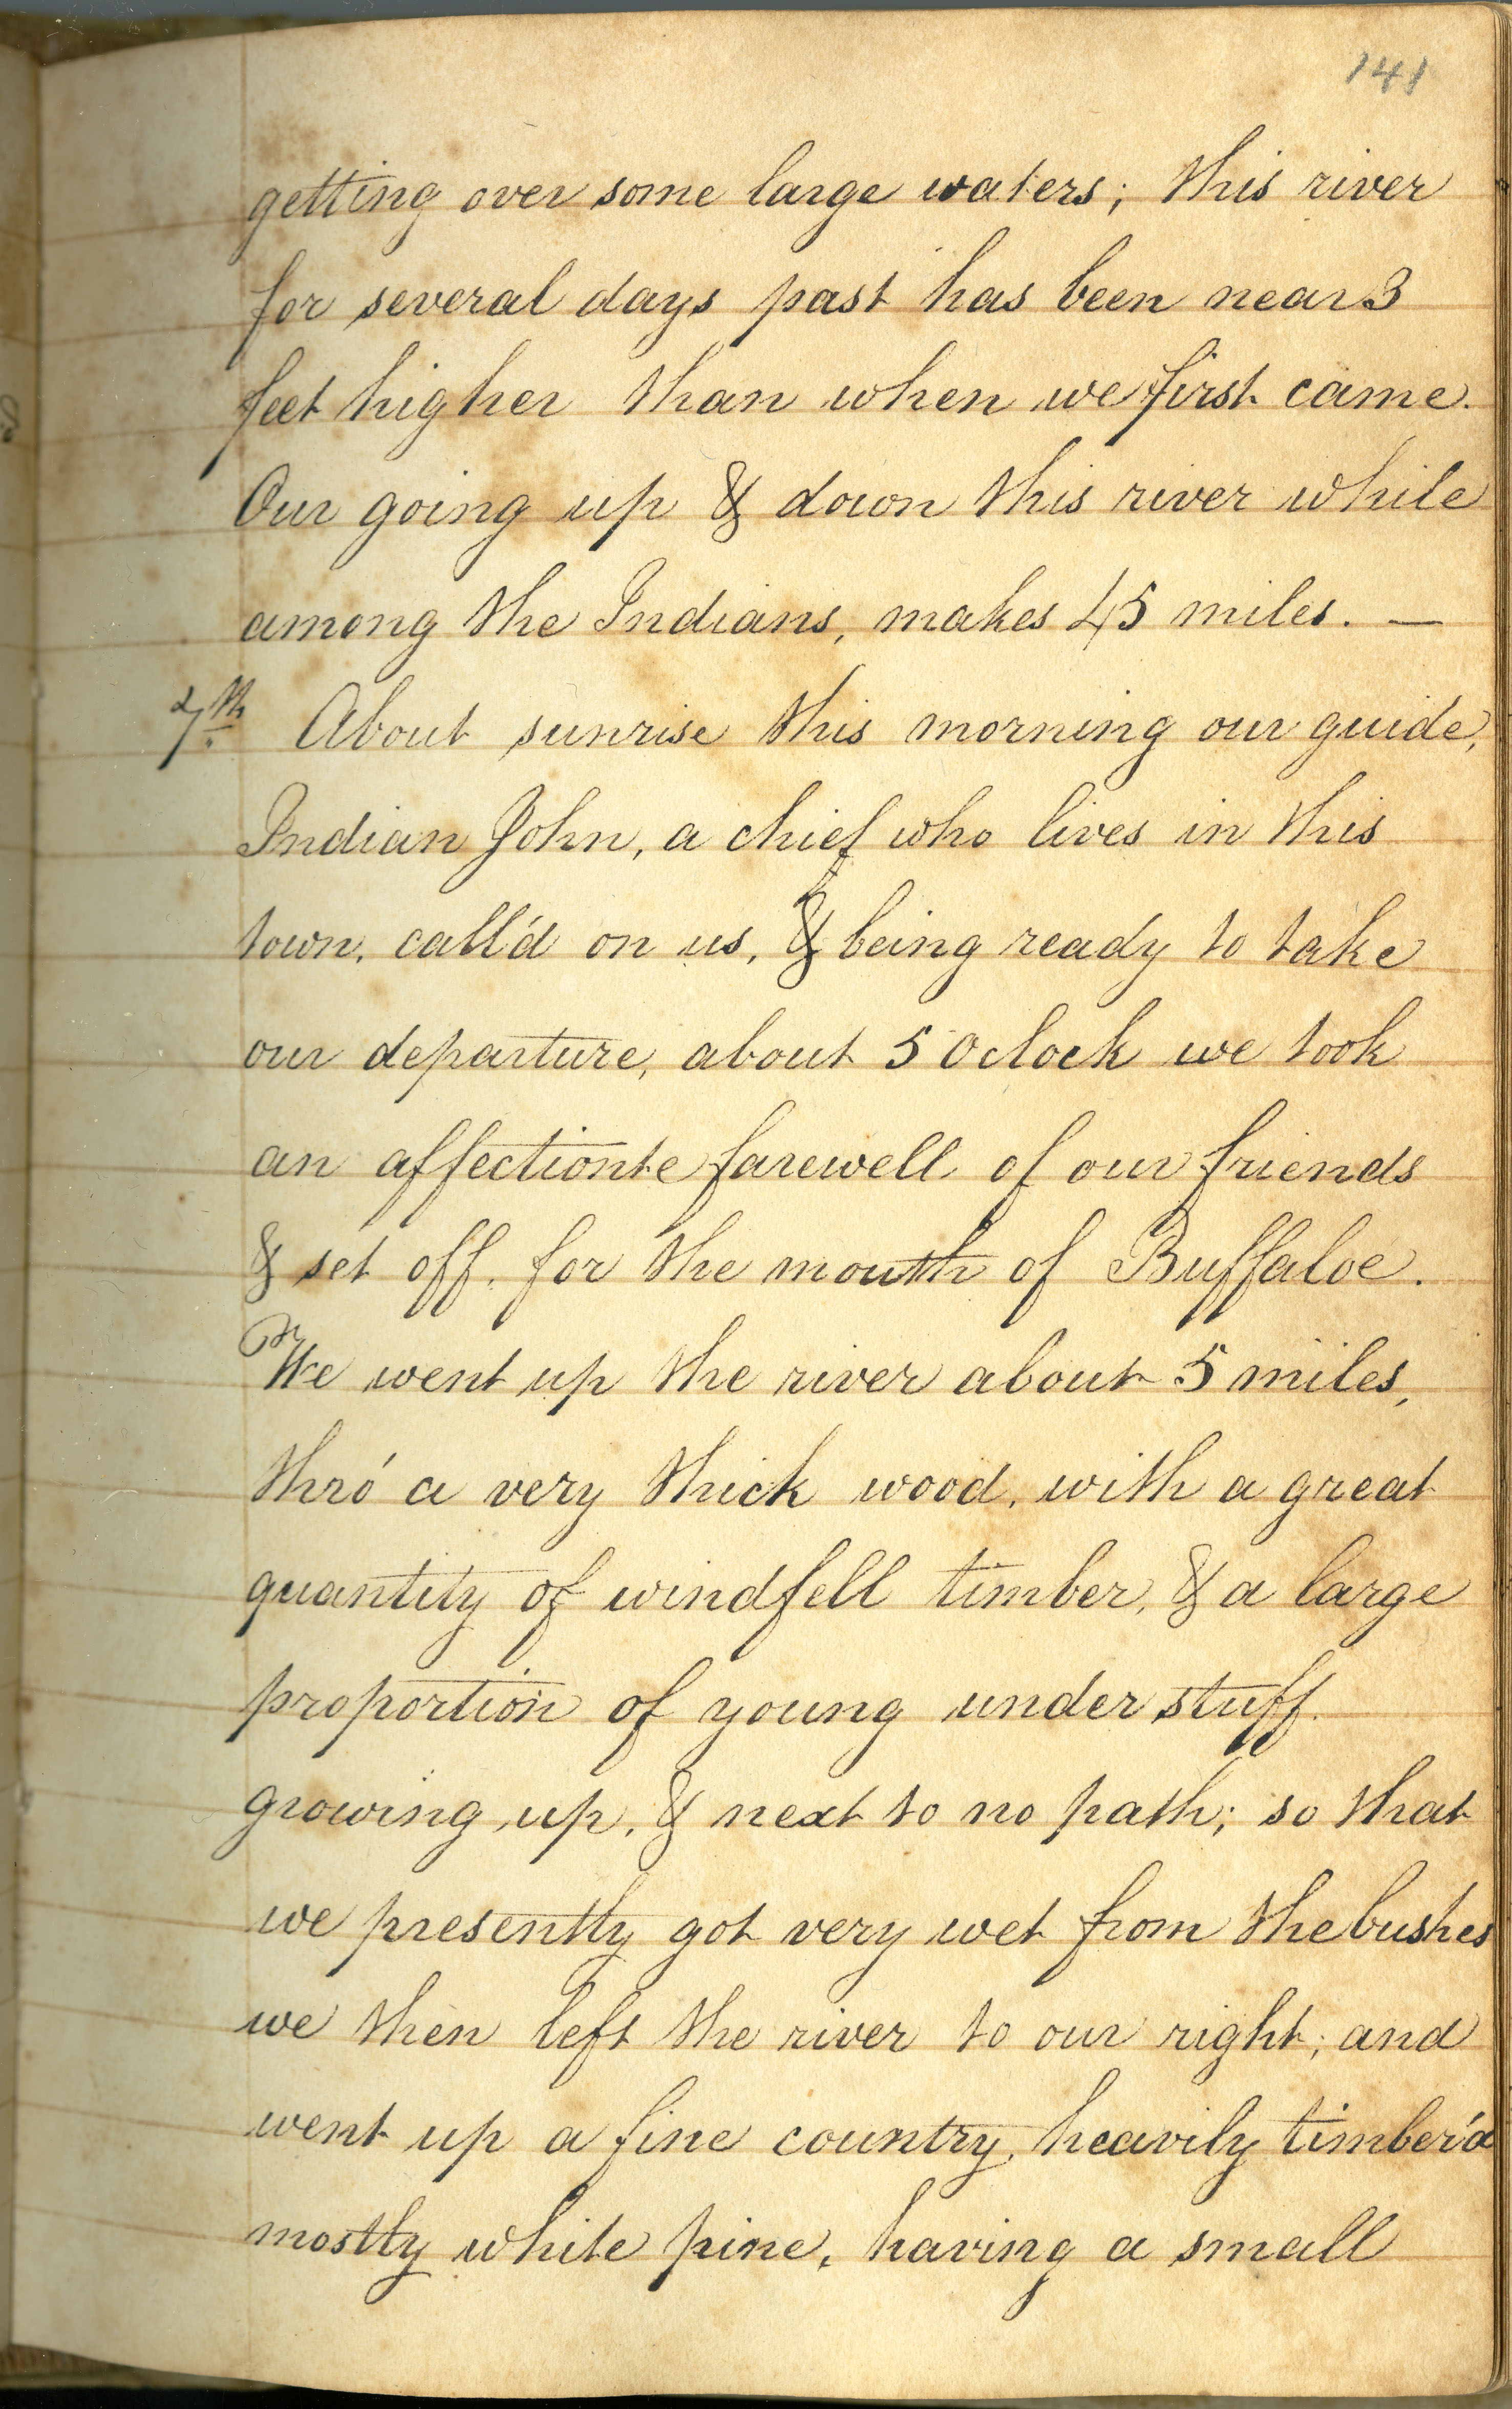 141
getting over some large waters; this river
for several days past has been near 3
feet higher than when we first came.
Our going up & down this river while
among the Indians, makes 45 miles. —
7th. About sunrise this morning our guide,
Indian John, a chief who lives in this
town, call'd on us, & being ready to take
our departure, about 5 Oclock we took
an affectionte farewell of our friends
& set off, for the mouth of Buffaloe.
We went up the river about 5 miles,
thro' a very thick wood, with a great
quantity of windfell timber, & a large
proportion of young under stuff
growing up, & next to no path; so that
we presently got very wet from the bushes
we then left the river to our right; and
went up a fine country, heavily timber'd
mostly white pine, having a small